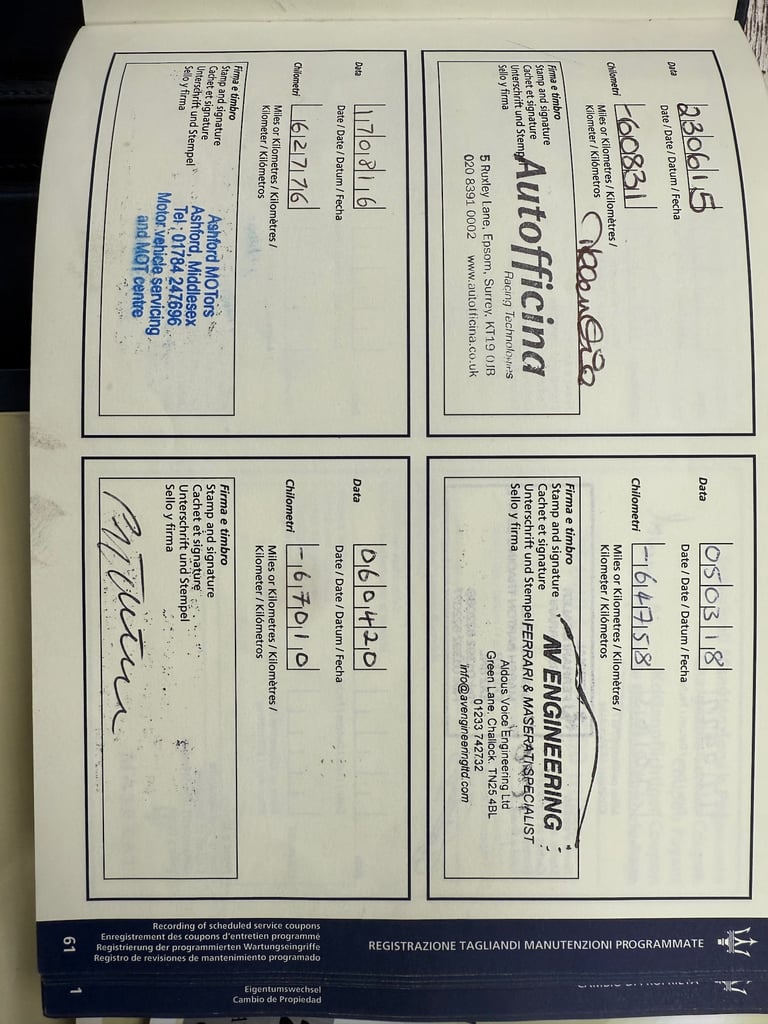 Data
23 06 15
Date / Date / Datum / Fecha
Chilometri
-60831
Miles or Kilometres / Kilomètres /
Kilometer / Kilómetros
Firma e timbro
Stamp and signature
Cachet et signature
Unterschrift und Stempel
Sello y firma
Autofficina
Racing Technologies
5 Ruxley Lane, Epsom, Surrey, KT19 0JB
020 8391 0002 www.autofficina.co.uk
Data
05 03 18
Date / Date / Datum / Fecha
Chilometri
-64758
Miles or Kilometres / Kilomètres /
Kilometer / Kilómetros
Firma e timbro
Stamp and signature
Cachet et signature
Unterschrift und Stempel
Sello y firma
AV ENGINEERING
FERRARI & MASERATI SPECIALIST
Aldous Voice Engineering Ltd
Green Lane, Challock, TN25 4BL
01233 742732
info@avengineeringltd.com
Data
17 08 16
Date / Date / Datum / Fecha
Chilometri
62776
Miles or Kilometres / Kilomètres /
Kilometer / Kilómetros
Firma e timbro
Stamp and signature
Cachet et signature
Unterschrift und Stempel
Sello y firma
Ashford MOTors
Ashford, Middlesex
Tel : 01784 247696
Motor vehicle servicing
and MOT centre
Data
06 04 20
Date / Date / Datum / Fecha
Chilometri
-67010
Miles or Kilometres / Kilomètres /
Kilometer / Kilómetros
Firma e timbro
Stamp and signature
Cachet et signature
Unterschrift und Stempel
Sello y firma
REGISTRAZIONE TAGLIANDI MANUTENZIONI PROGRAMMATE
Recording of scheduled service coupons
Enregistrement des coupons d'entretien programmé
Registrierung der programmierten Wartungseingriffe
Registro de revisiones de mantenimiento programado
61
CAMBIO DI PROPRIETÀ
Eigentumswechsel
Cambio de Propiedad
1